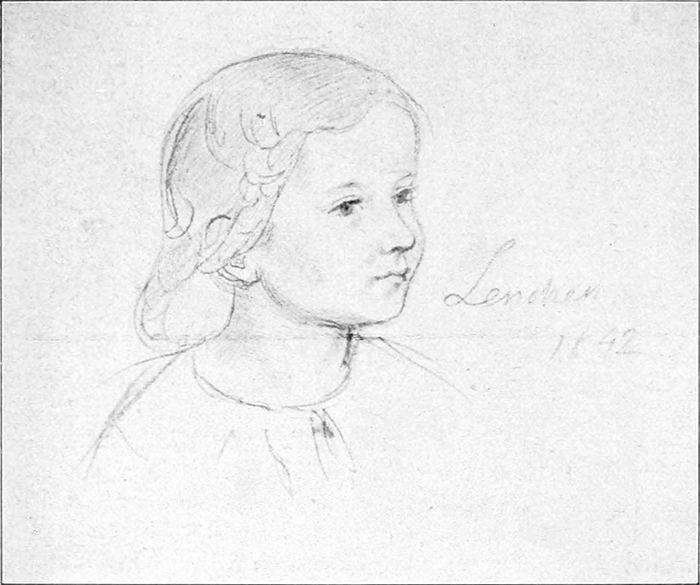 Lenchen
1842